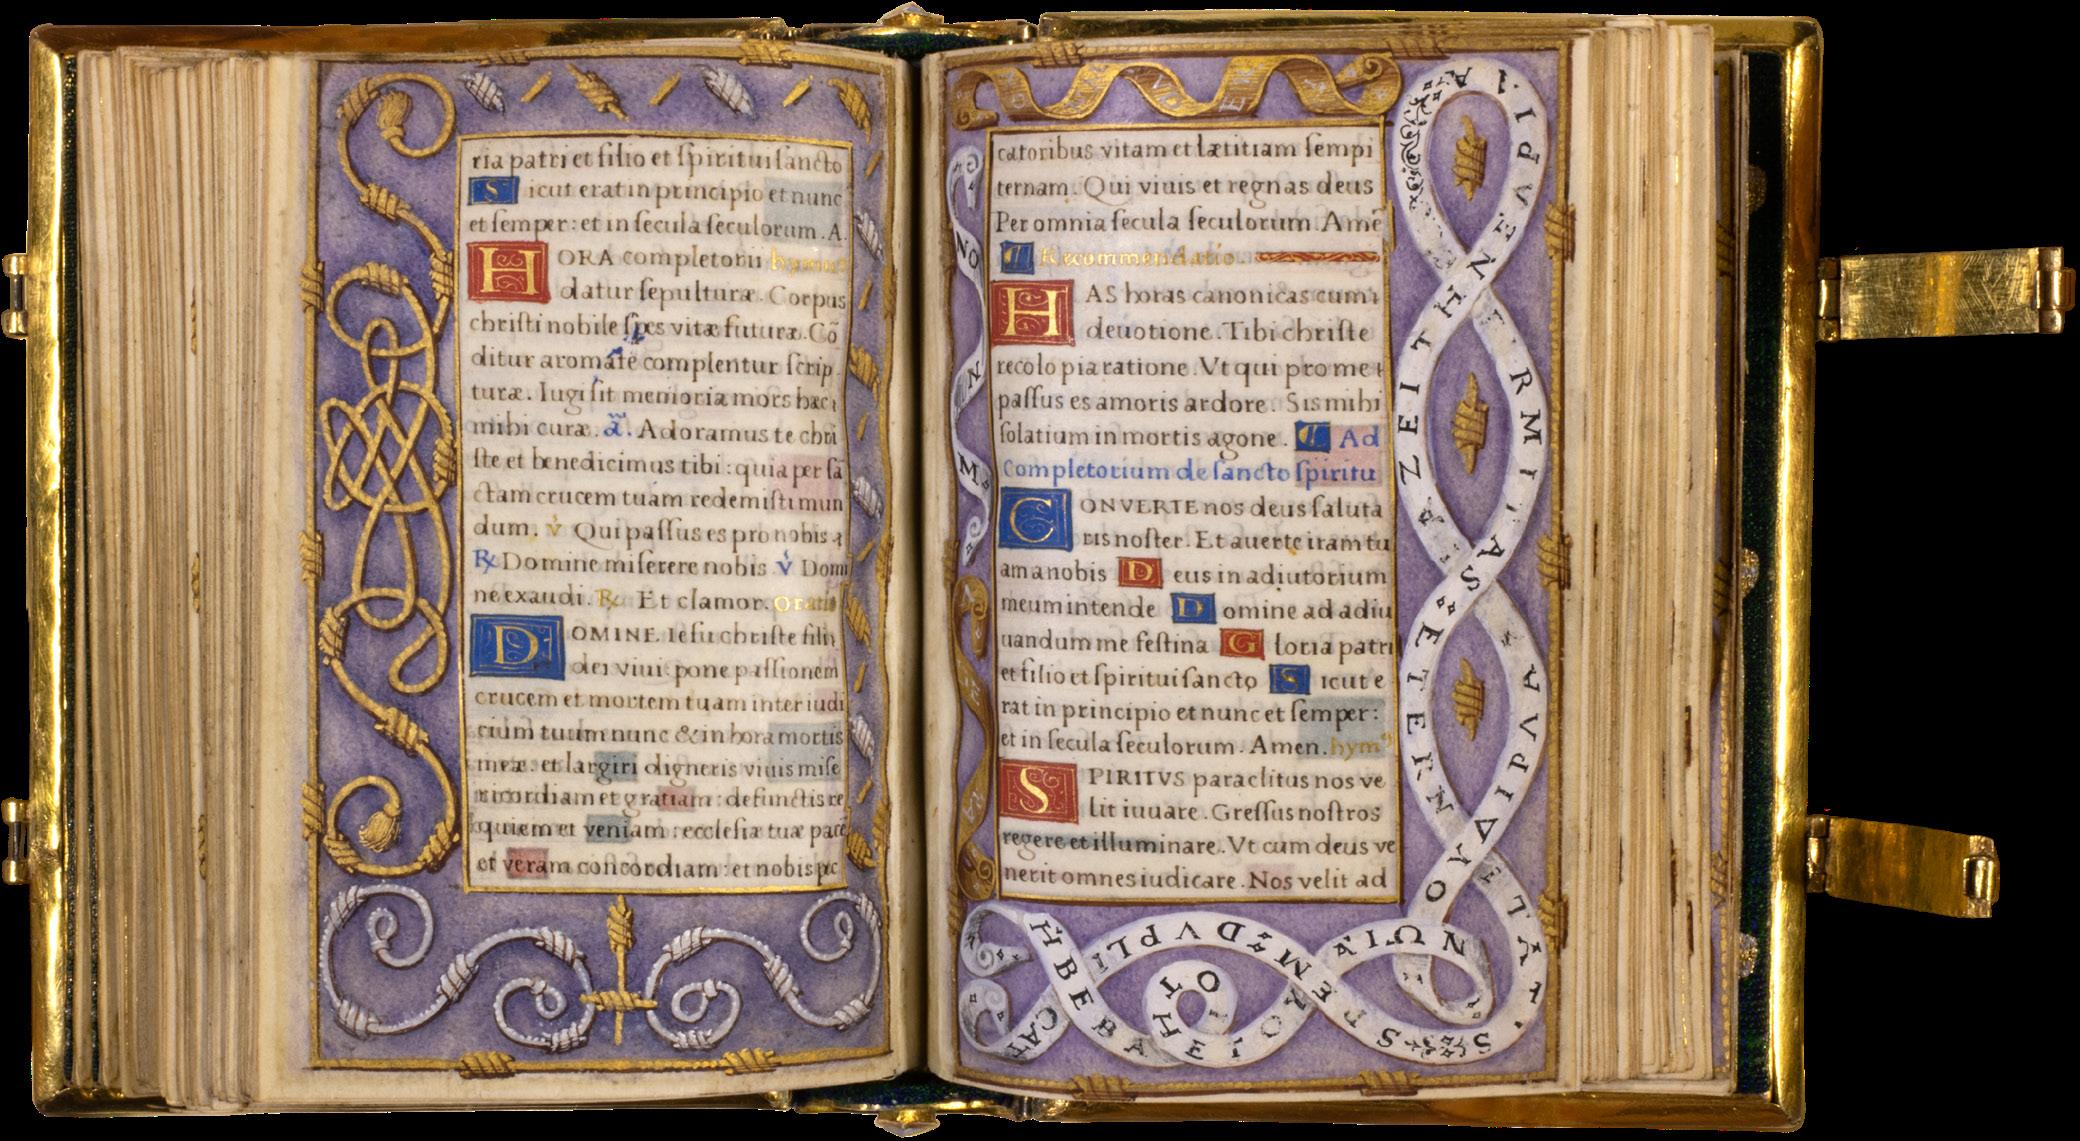 ria patri et filio et spiritui sancto
S icut erat in principio et nunc
et semper: et in secula seculorum. A.
H ORA completorii hymnꝰ
datur sepulturæ. Corpus
christi nobile spes vitæ futuræ. Cō
ditur aromate complentur scrip
turæ. Iugi sit memoria mors hæc
mihi curæ. añ. Adoramus te chri
ste et benedicimus tibi: quia per sā
ctam crucem tuam redemisti mun
dum. v̇ Qui passus es pro nobis.
℟ Domine miserere nobis v̇ Domi
ne exaudi. ℟. Et clamor. Oratio
D OMINE Iesu christe filii
dei viui: pone passionem
crucem et mortem tuam inter iudi
cium tuum nunc & in hora mortis
meæ: et largiri digneris viuis mise
ricordiam et gratiam: defunctis re
quiem et veniam: ecclesiæ tuæ pacē
et veram concordiam: et nobis pec
catoribus vitam et lætitiam sempi
ternam. Qui viuis et regnas deus
Per omnia secula seculorum. Amē
¶ Recommendatio.
H AS horas canonicas cum
deuotione. Tibi christe
recolo pia ratione. Vt qui pro me
passus es amoris ardore. Sis mihi
solatium in mortis agone. ¶ Ad
completorium de sancto spiritu
C ONVERTE nos deus saluta
ris noster. Et auerte iram tu
am a nobis D eus in adiutorium
meum intende D omine ad adiu
uandum me festina G loria patri
et filio et spiritui sancto S icut e
rat in principio et nunc et semper:
et in secula seculorum. Amen. hymꝰ
S PIRITVS paraclitus nos ve
lit iuuare. Gressus nostros
regere et illuminare. Vt cum deus ve
nerit omnes iudicare. Nos velit ad